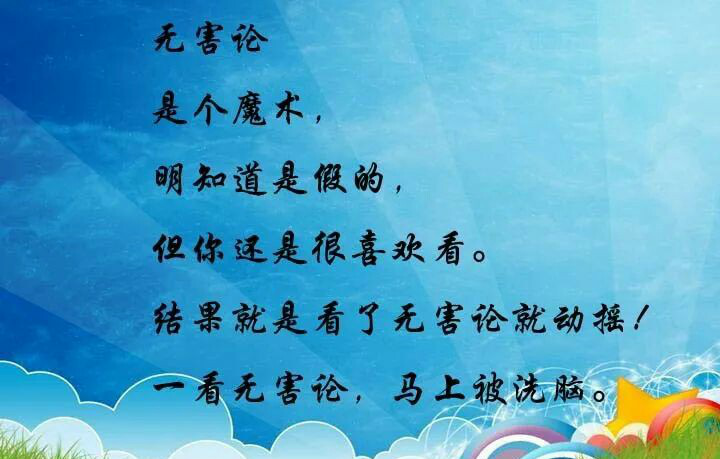 无害论
是个魔术，
明知道是假的，
但你还是很喜欢看。
结果就是看了无害论就动摇！
一看无害论，马上被洗脑。